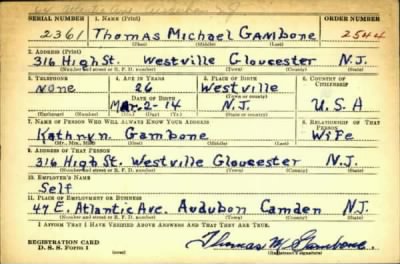 SERIAL NUMBER 1. NAME (Print) ORDER NUMBER
2361 Thomas Michael Gambone 2544
(First) (Middle) (Last)
2. ADDRESS (Print)
316 High St. Westville Gloucester N.J.
(Number and street or R. F. D. number) (Town) (County) (State)
3. TELEPHONE 4. AGE IN YEARS 5. PLACE OF BIRTH 6. COUNTRY OF CITIZENSHIP
None 26 Westville
DATE OF BIRTH (Town or county)
Mar-2-14 N.J. U.S.A
(Exchange) (Number) (Mo.) (Day) (Yr.) (State or country)
7. NAME OF PERSON WHO WILL ALWAYS KNOW YOUR ADDRESS 8. RELATIONSHIP OF THAT PERSON
Kathryn Gambone Wife
(Mr., Mrs., Miss) (First) (Middle) (Last)
9. ADDRESS OF THAT PERSON
316 High St. Westville Gloucester N.J.
(Number and street or R. F. D. number) (Town) (County) (State)
10. EMPLOYER'S NAME
Self
11. PLACE OF EMPLOYMENT OR BUSINESS
47 E. Atlantic Ave. Audubon Camden N.J.
(Number and street or R. F. D. number) (Town) (County) (State)
I AFFIRM THAT I HAVE VERIFIED ABOVE ANSWERS AND THAT THEY ARE TRUE.
REGISTRATION CARD
D. S. S. Form 1 Thomas M. Gambone
(Registrant's signature)